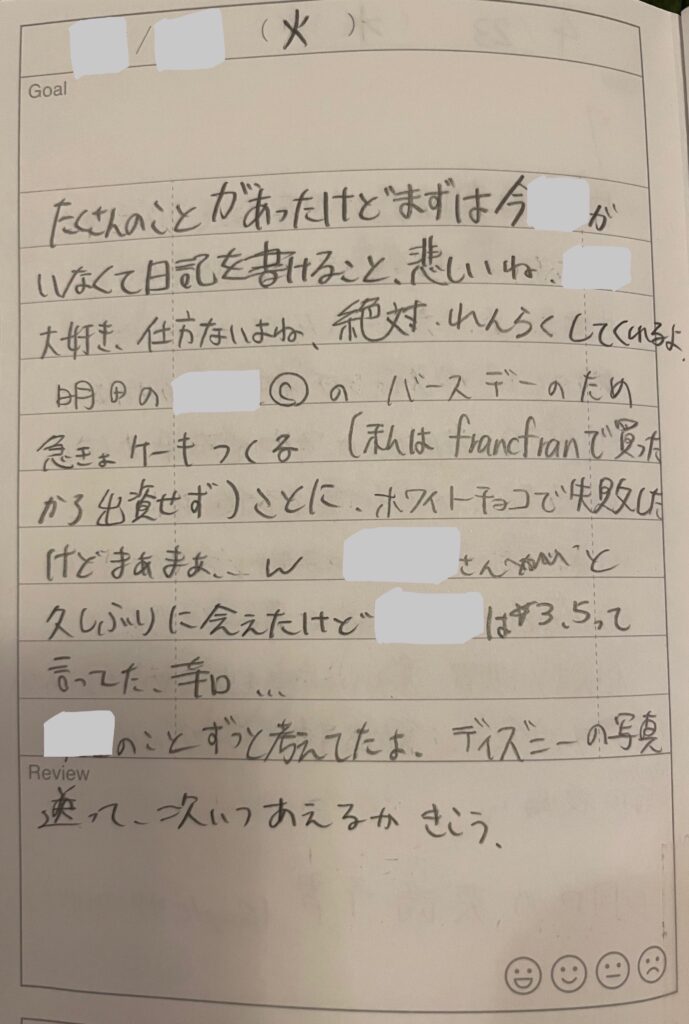 / (火)
Goal
たくさんのことがあったけどまずは今 が
いなくて日記を書けること、悲しいね、
大好き、仕方ないよね、絶対、れんらくしてくれるよ
明日の ©の バースデーのため
急きょケーキつくる (私はfrancfranで買った
から出資せず)ことに、ホワイトチョコで失敗した
けどまあまあ... w さん と
久しぶりに会えたけど は 3.5って
言ってた、辛口...
のことずっと考えてたよ、ディズニーの写真
Review
送って、次いつあえるかきこう、